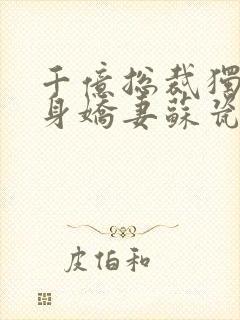 千億總裁獨
身嬌妻蘇瓷
皮伯和